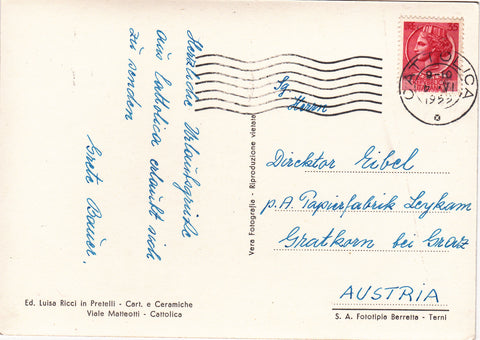 Herzliche Urlaubsgrüße
aus Cattolica erlaubt sich
zu senden
Grete Bauer.
Ed. Luisa Ricci in Pretelli - Cart. e Ceramiche
Viale Matteotti - Cattolica
Vera Fotografia - Riproduzione vietata
55
CATTOLICA
Sg
Herrn
Direktor Eibel
p. A. Papierfabrik Leykam
Gratkorn bei Graz
AUSTRIA
S. A. Fototipia Berretta - Terni